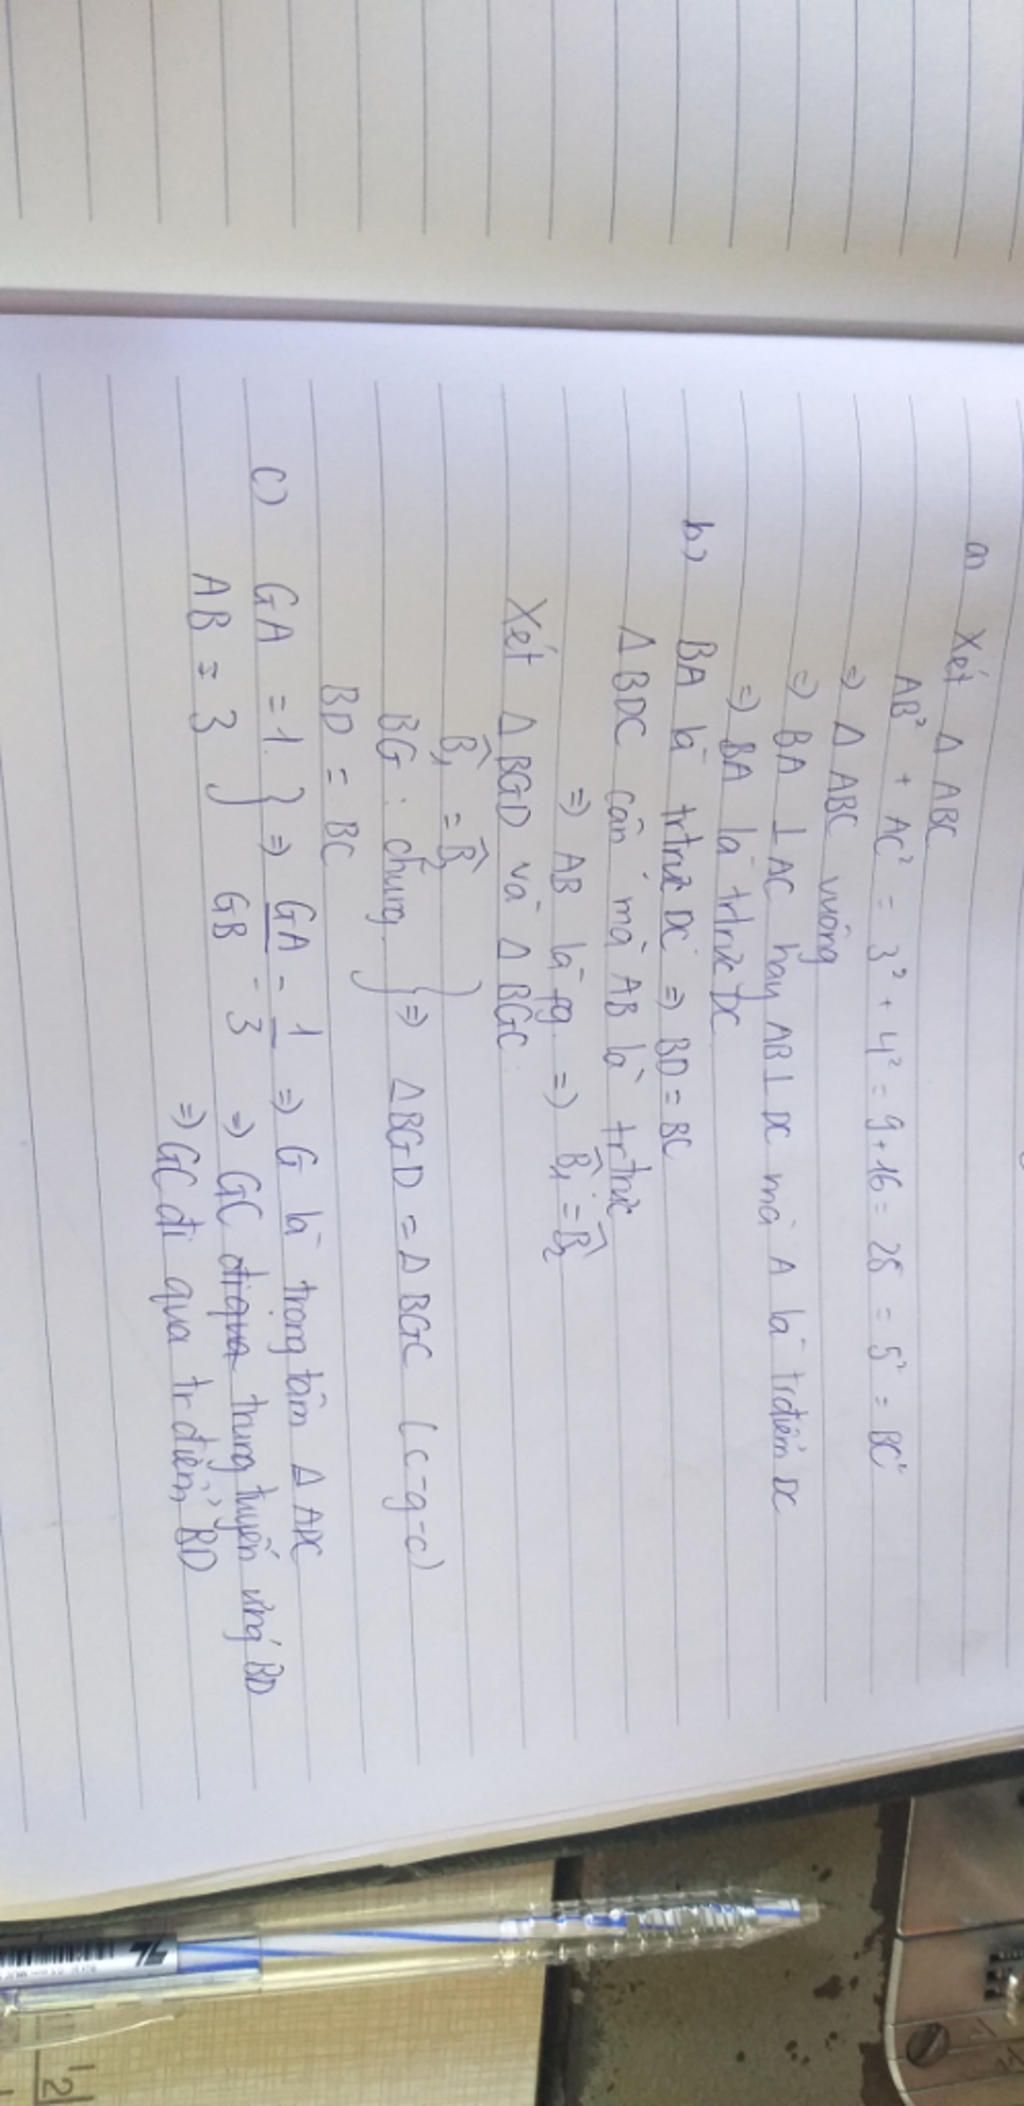 a) Xét Δ ABC
AB² + AC² = 3² + 4² = 9 + 16 = 25 = 5² = BC²
⇒ Δ ABC vuông
⇒ BA ⊥ AC hay AB ⊥ DC mà A là trđiểm DC
⇒ BA là trtrực DC
b) BA là trtrực DC ⇒ BD = BC
Δ BDC cân mà AB là trtrực
⇒ AB là fg ⇒ B̂₁ = B̂₂
Xét Δ BGD và Δ BGC
B̂₁ = B̂₂
BG : chung } ⇒ ΔBGD = Δ BGC (c-g-c)
BD = BC
c) GA = 1 } ⇒ GA = 1 ⇒ G là trọng tâm Δ
AB = 3 GB 3 ⇒ GC trung tuyến ứng BD
⇒ GC đi qua tr điểm BD
12